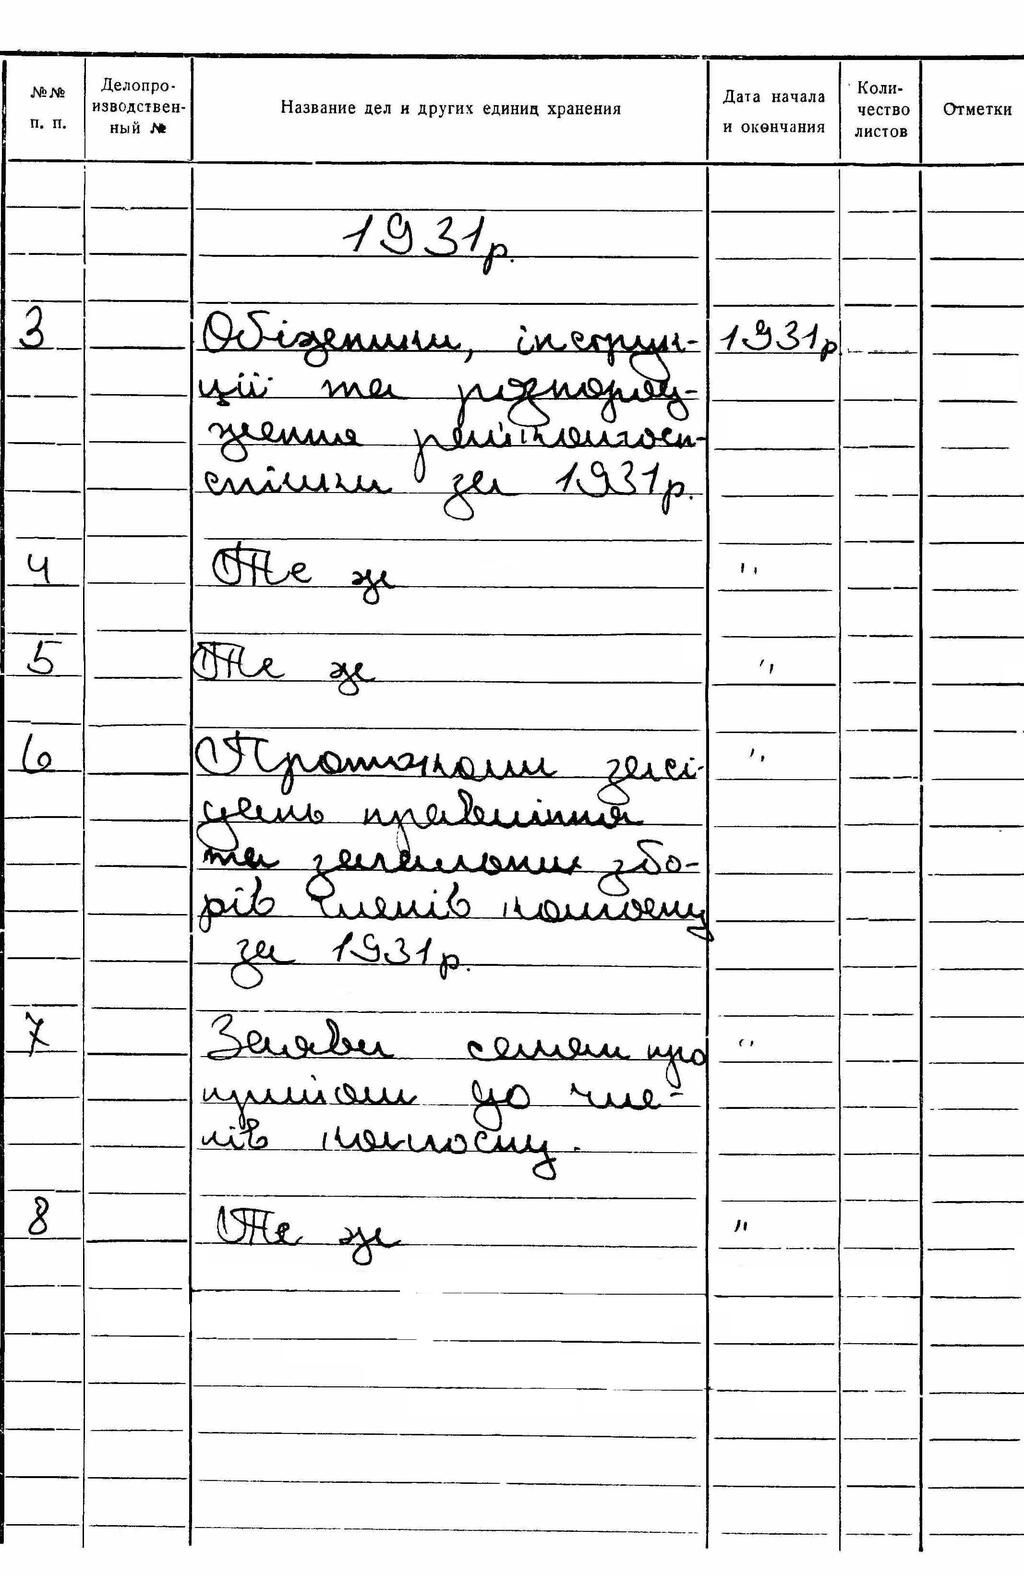 №№ п. п.
Делопро-
изводствен-
ный №
Название дел и других единиц хранения
Дата начала
и окончания
Коли-
чество
листов
Отметки
1931р.
3 Обіжники, інструк- 1931р
ції та розпоряд-
ження райколгосп-
спілки за 1931р.
4 Те ж "
5 Те ж "
6 Протоколи засі- "
дань правління
та загальних збо-
рів членів колгоспу
за 1931р.
7 Заяви селян про "
прийом до чле-
нів колгоспу.
8 Те ж "